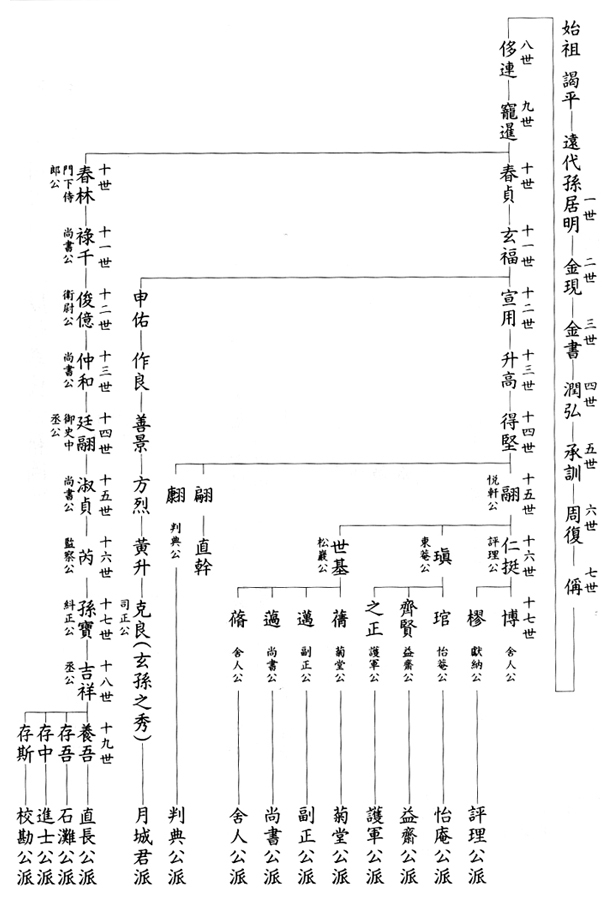 始祖 謁平 遠代孫居明 金現 金書 潤弘 承訓 周復 偁
一世 二世 三世 四世 五世 六世 七世
八世 九世 十世 十一世 十二世 十三世 十四世 十五世 十六世 十七世
侈連 寵暹 春貞 玄福 宣用 升高 得堅 翮 仁挺 博 舍人公
悦軒公 評理公
樛 獻納公 評理公派
瑱 琯 怡菴公 怡庵公派
東菴公
齊賢 益齋公 益齋公派
之正 護軍公 護軍公派
世基 蒨 菊堂公 菊堂公派
松巖公
邁 副正公 副正公派
薖 尚書公 尚書公派
蓨 舍人公 舍人公派
翩 直幹
判典公 判典公派
申佑 作良 善景 方烈 黄升 克良(玄孫之秀) 月城君派
司正公
十世 十一世 十二世 十三世 十四世 十五世 十六世 十七世 十八世 十九世
春林 祿千 俊億 仲和 廷翮 淑貞 芮 孫寶 吉祥 養吾 直長公派
門下侍郎公 尚書公 衛尉公 尚書公 御史中丞公 尚書公 監察公 糾正公 丞公
存吾 石灘公派
存中 進士公派
存斯 校勘公派